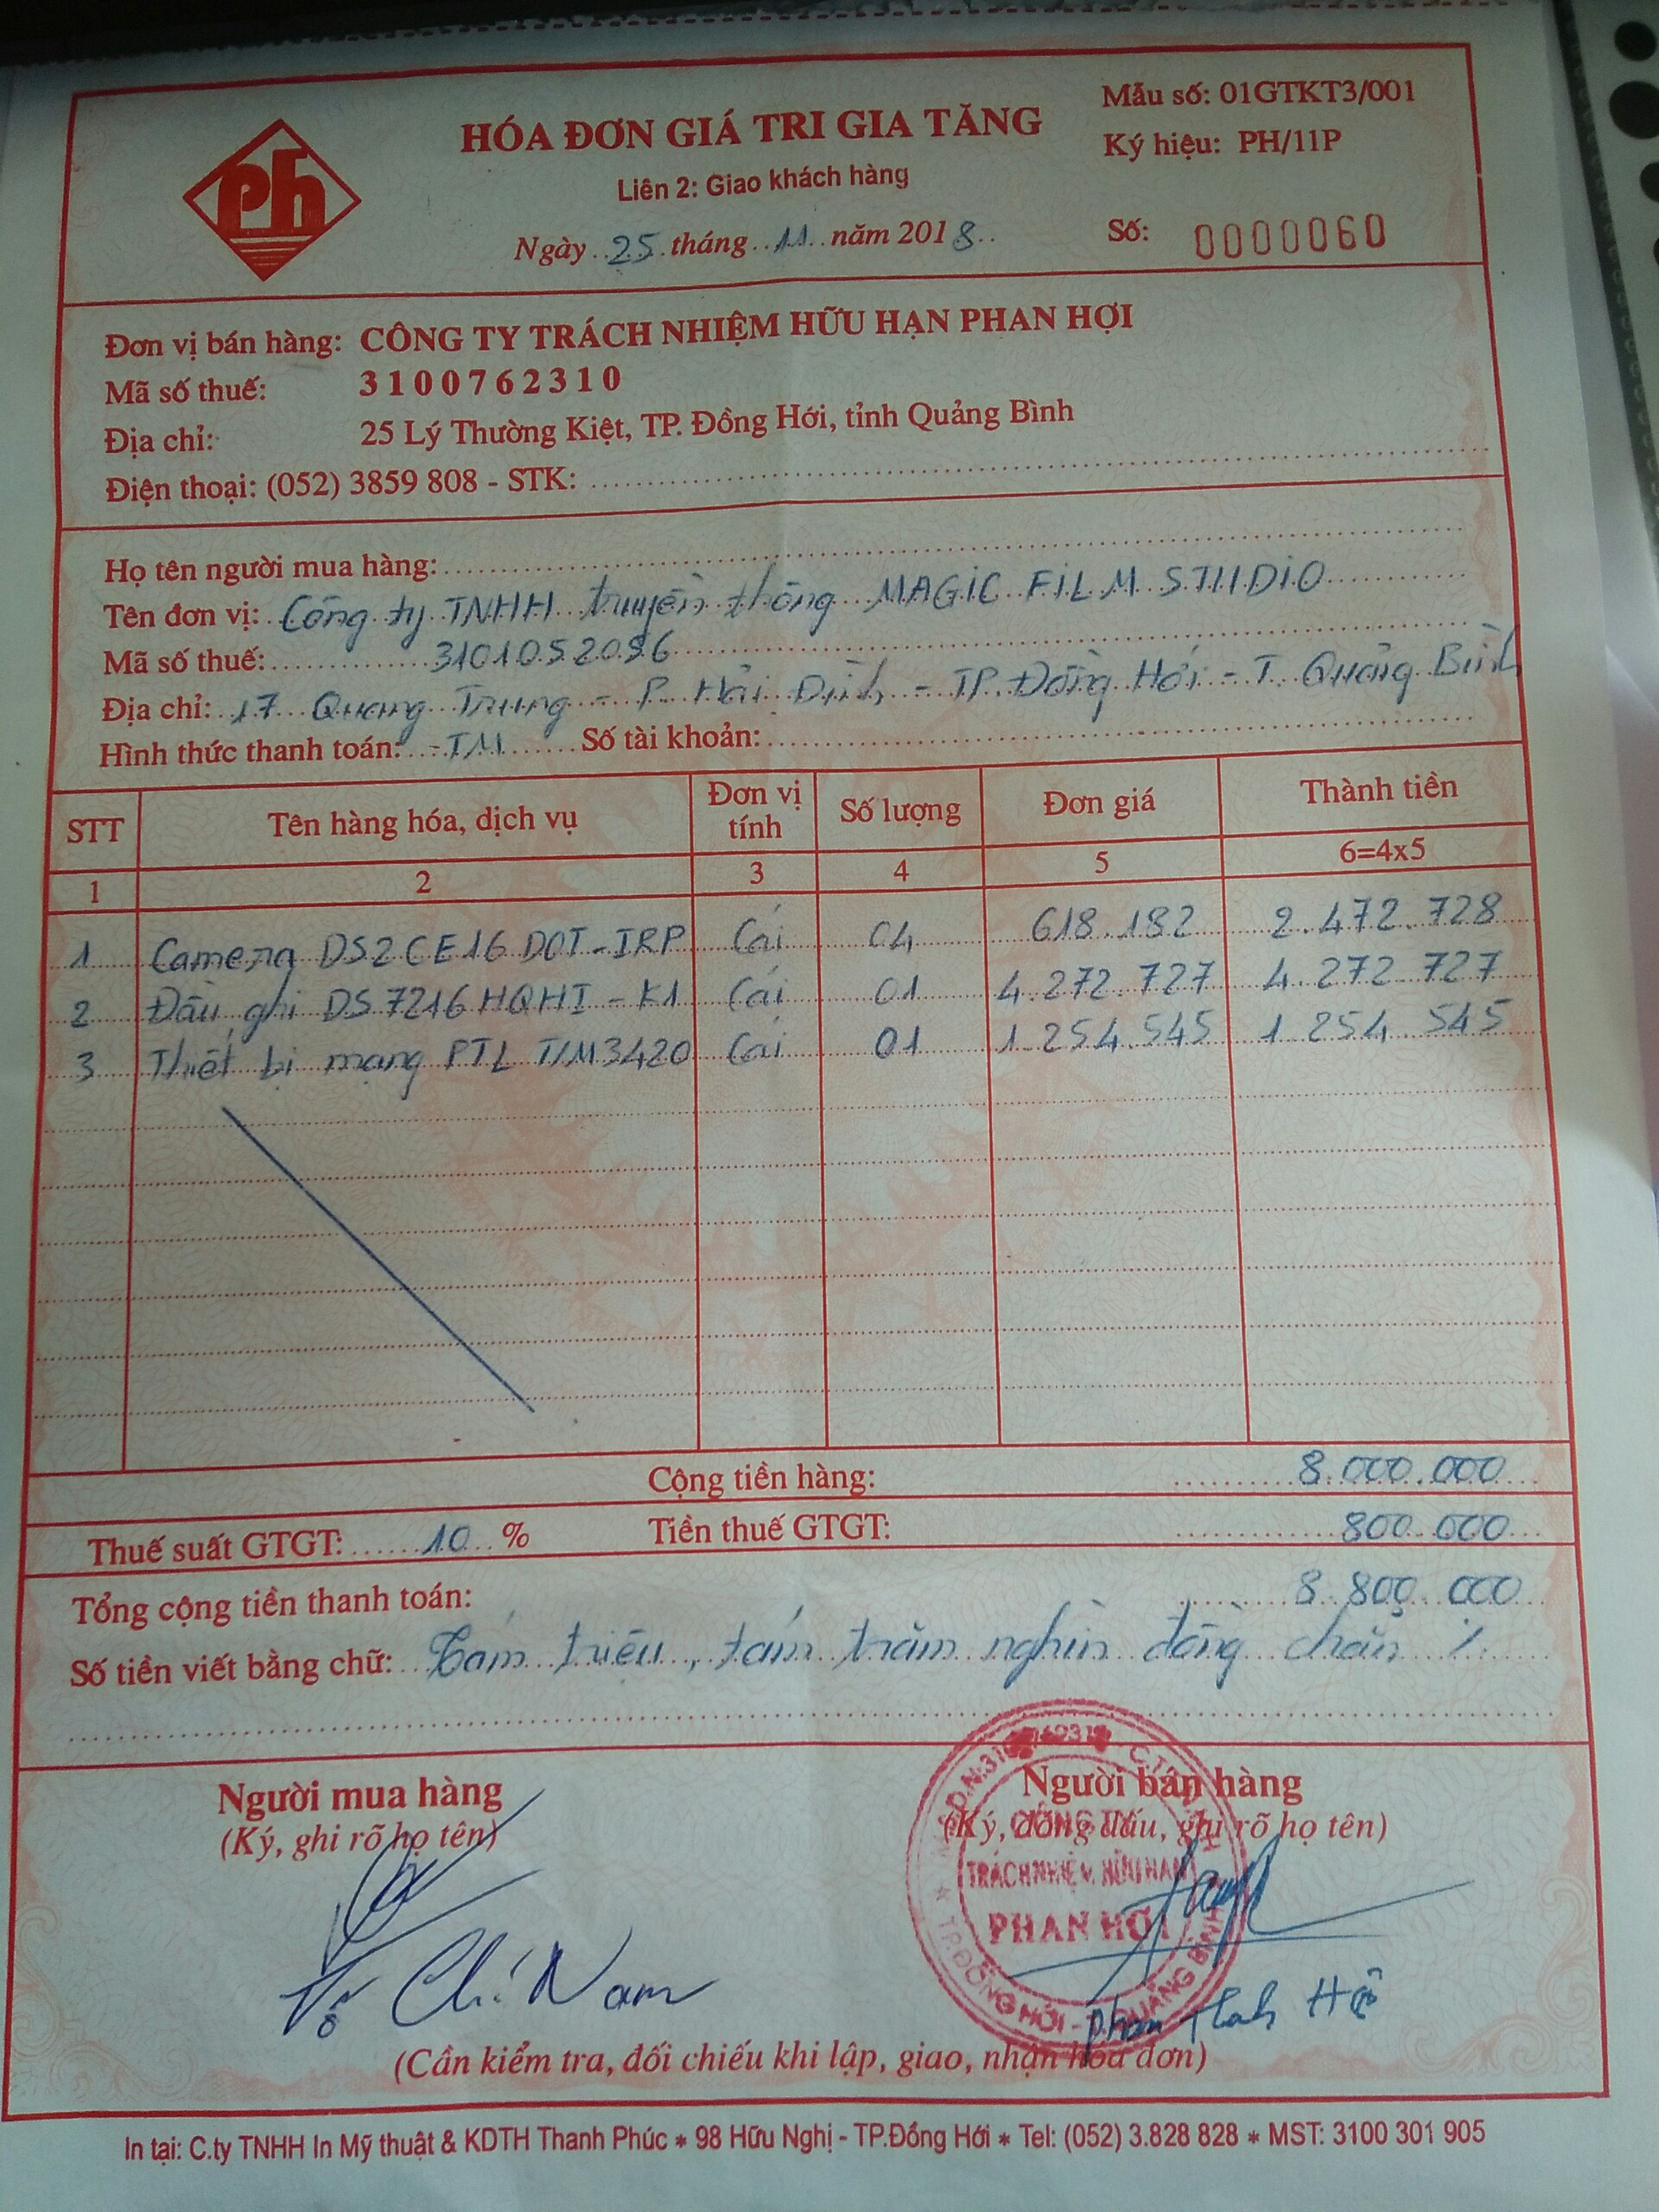 Ph
HÓA ĐƠN GIÁ TRI GIA TĂNG
Liên 2: Giao khách hàng
Ngày 25 tháng 11 năm 2018
Mẫu số: 01GTKT3/001
Ký hiệu: PH/11P
Số: 0000060
Đơn vị bán hàng: CÔNG TY TRÁCH NHIỆM HỮU HẠN PHAN HỢI
Mã số thuế: 3100762310
Địa chỉ: 25 Lý Thường Kiệt, TP. Đồng Hới, tỉnh Quảng Bình
Điện thoại: (052) 3859 808 - STK:
Họ tên người mua hàng:
Tên đơn vị: Công ty TNHH truyền thông MAGIC FILM STUDIO
Mã số thuế: 3101052096
Địa chỉ: 17 Quang Trung - P. Hải Đình - TP. Đồng Hới - T. Quảng Bình
Hình thức thanh toán: -TM Số tài khoản:
STT Tên hàng hóa, dịch vụ Đơn vị tính Số lượng Đơn giá Thành tiền
1 2 3 4 5 6=4x5
1 Camera DS2CE16DOT-IRP Cái 04 618.182 2.472.728
2 Đầu ghi DS7216HQHI-K1 Cái 01 4.272.727 4.272.727
3 Thiết bị mạng PTL 3420 Cái 01 1.254.545 1.254.545
Cộng tiền hàng: 8.000.000
Thuế suất GTGT: 10 % Tiền thuế GTGT: 800.000
Tổng cộng tiền thanh toán: 8.800.000
Số tiền viết bằng chữ: Tám triệu, tám trăm nghìn đồng chẵn ./.
Người mua hàng
(Ký, ghi rõ họ tên)
Võ Chí Nam
Người bán hàng
(Ký, đóng dấu, ghi rõ họ tên)
CÔNG TY
TRÁCH NHIỆM HỮU HẠN
PHAN HỢI
TP.ĐỒNG HỚI - T.QUẢNG BÌNH
Phan
(Cần kiểm tra, đối chiếu khi lập, giao, nhận hóa đơn)
In tại: C.ty TNHH In Mỹ thuật & KDTH Thanh Phúc * 98 Hữu Nghị - TP.Đồng Hới * Tel: (052) 3.828 828 * MST: 3100 301 905